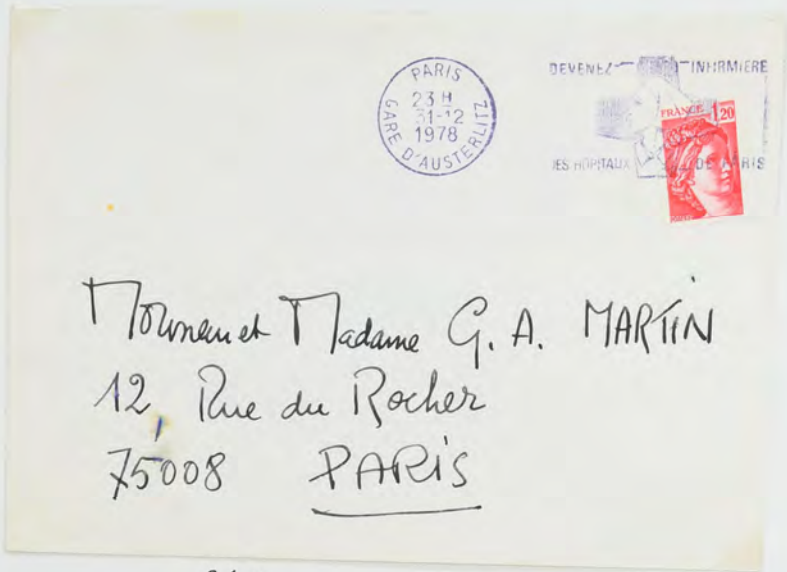 PARIS
23 H
31-12
1978
GARE D'AUSTERLITZ
DEVENEZ INFIRMIERE
DES HOPITAUX DE PARIS
FRANCE 1,20
Monsieur et Madame G. A. MARTIN
12, Rue du Rocher
75008 PARIS